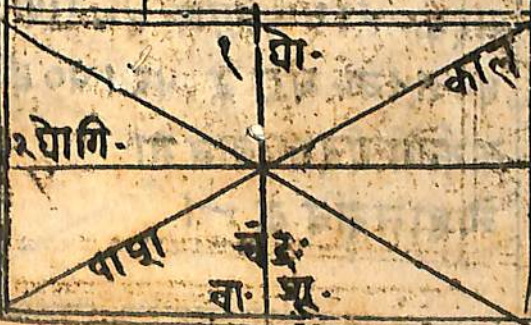 १ यो·
काल
२ योगि·
पाश
चंद्रः
वा· शू·